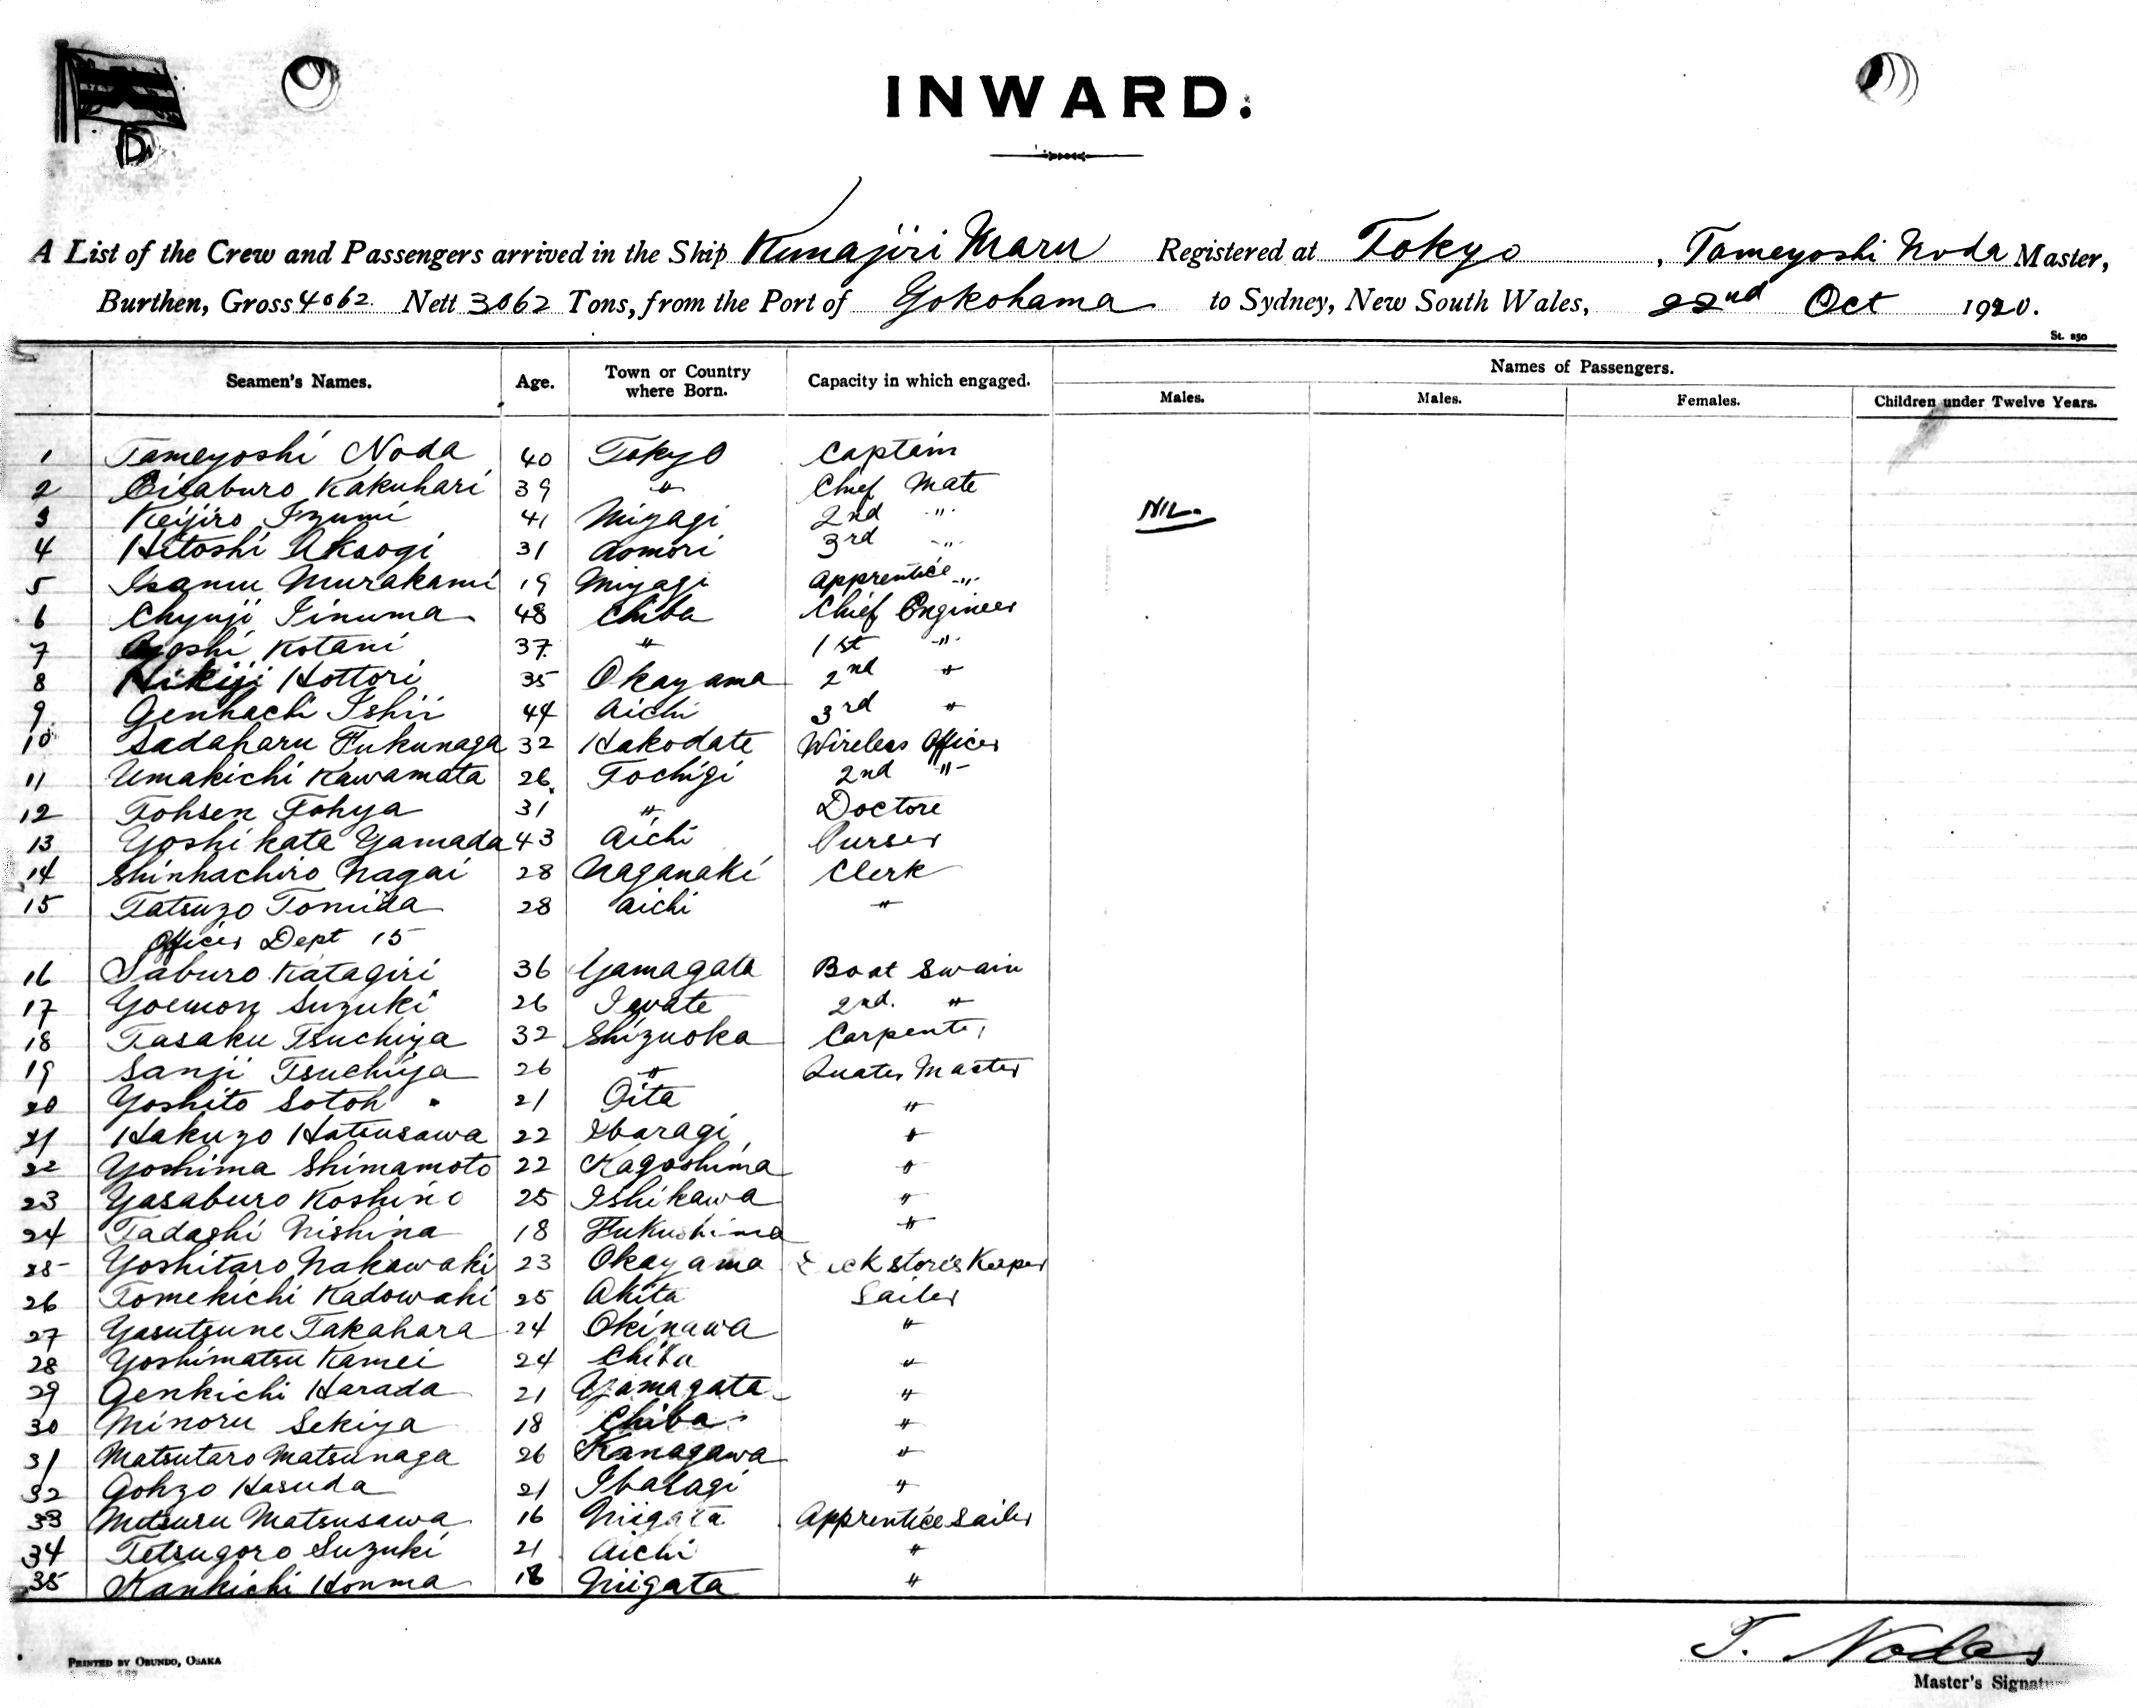 D.
INWARD.
A List of the Crew and Passengers arrived in the Ship Kunajiri Maru Registered at Tokyo , Tameyoshi Noda Master,
Burthen, Gross 4062 Nett 3062 Tons, from the Port of Yokohama to Sydney, New South Wales, 22nd Oct 1920.
St. 250
Seamen's Names. Age. Town or Country where Born. Capacity in which engaged. Names of Passengers.
Males. Males. Females. Children under Twelve Years.
1 Tameyoshi Noda 40 Tokyo Captain
2 Eisaburo Kakuhari 39 " Chief Mate
3 Keijiro Izumi 41 Miyagi 2nd " NIL.
4 Hitoshi Akaogi 31 Aomori 3rd "
5 Isamu Murakami 19 Miyagi Apprentice "
6 Chyuji Iinuma 48 Chiba Chief Engineer
7 Kotani 37 " 1st "
8 Hikiji Hottori 35 Okayama 2nd "
9 Genhachi Ishii 44 Aichi 3rd "
10 Sadaharu Fukunaga 32 Hakodate Wireless Officer
11 Umakichi Kawamata 26 Tochigi 2nd "
12 Tohsen Tohya 31 " Doctore
13 Yoshikata Yamada 43 Aichi Purser
14 Shinhachiro Nagai 28 Naganaki Clerk
15 Tatsuzo Tomida 28 Aichi "
Officer Dept 15
16 Saburo Katagiri 36 Yamagata Boat Swain
17 Goemon Suzuki 26 Iwate 2nd. "
18 Tasaku Tsuchiya 32 Shizuoka Carpenter
19 Sanji Tsuchiya 26 " Quater Master
20 Yoshito Sotoh 21 Oita "
21 Hakuzo Hatsusawa 22 Ibaragi "
22 Yoshima Shimamoto 22 Kagoshima "
23 Yasaburo Koshino 25 Ishikawa "
24 Tadashi Nishina 18 Fukushima "
25 Yoshitaro Nakawaki 23 Okayama Deck stores Keeper
26 Tomekichi Kadowaki 25 Akita Sailer
27 Yasutsune Takahara 24 Okinawa "
28 Yoshimatsu Kamei 24 Chiba "
29 Genkichi Harada 21 Yamagata "
30 Minoru Sekiya 18 Chiba "
31 Matsutaro Matsunaga 26 Kanagawa "
32 Gohzo Hasuda 21 Ibaragi "
33 Mitsuru Matsusawa 16 Niigata Apprentice Sailer
34 Tetsugoro Suzuki 21 Aichi "
35 Kankichi Honma 18 Niigata "
T. Noda
Printed by Obundo, Osaka
Master's Signature